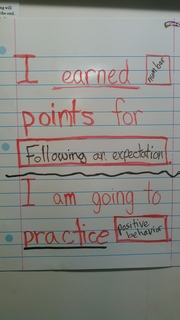 I earned number
points for
Following an expectation.
I am going to
practice positive behavior.